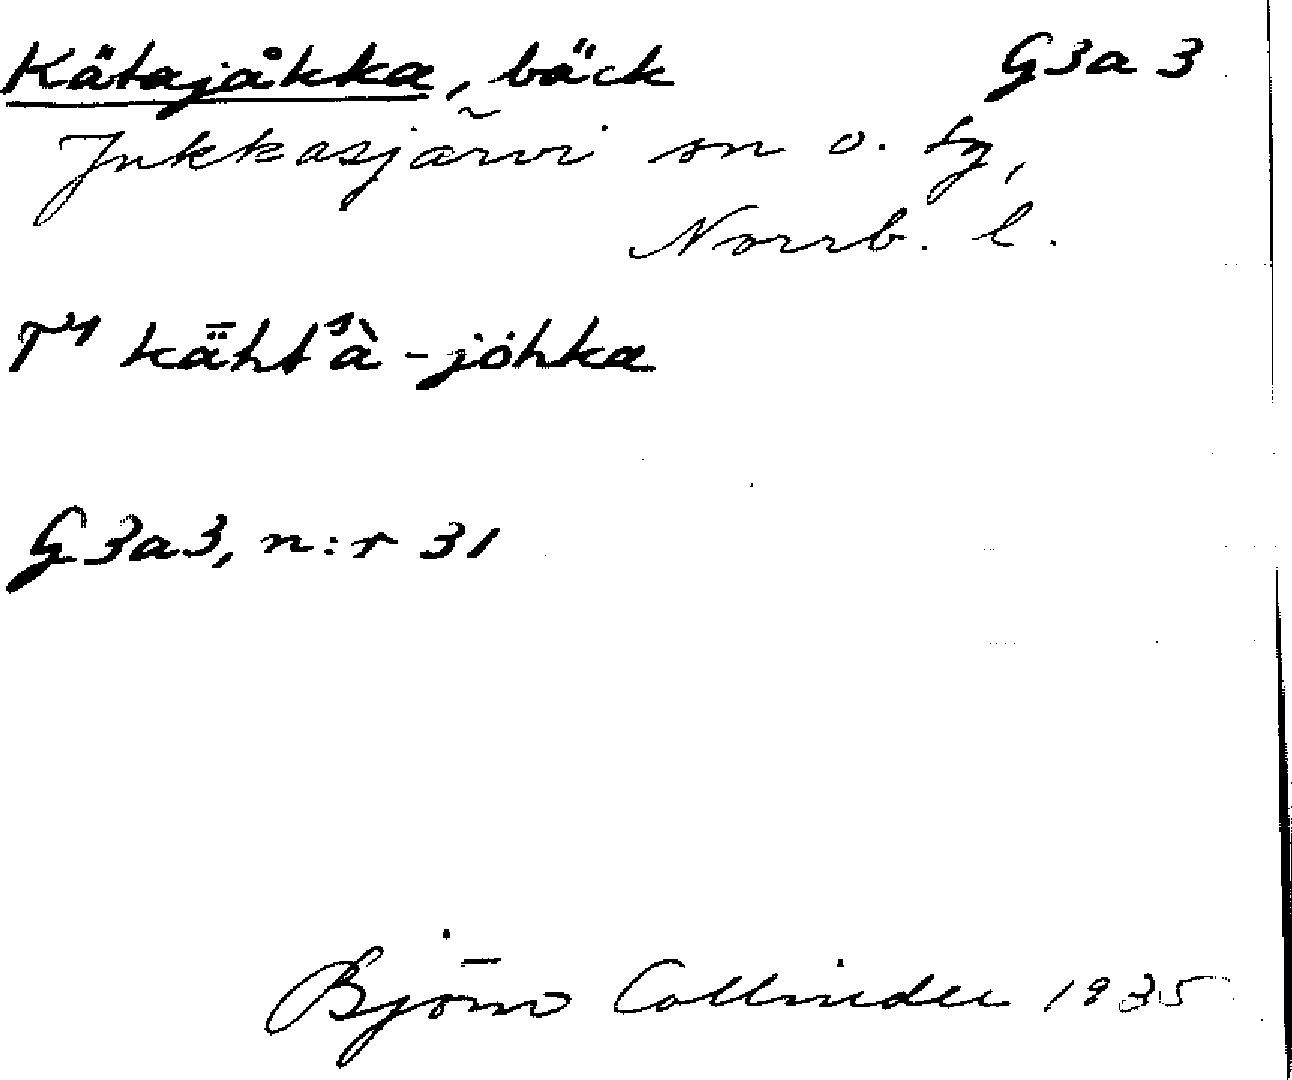 Kätajåkka, bäck G3a3
Jukkasjärvi sn o. tg,
Norrb. l.
T¹ kǟht'à-jȯhka
G3a3, n:r 31
Björn Collinder 1935